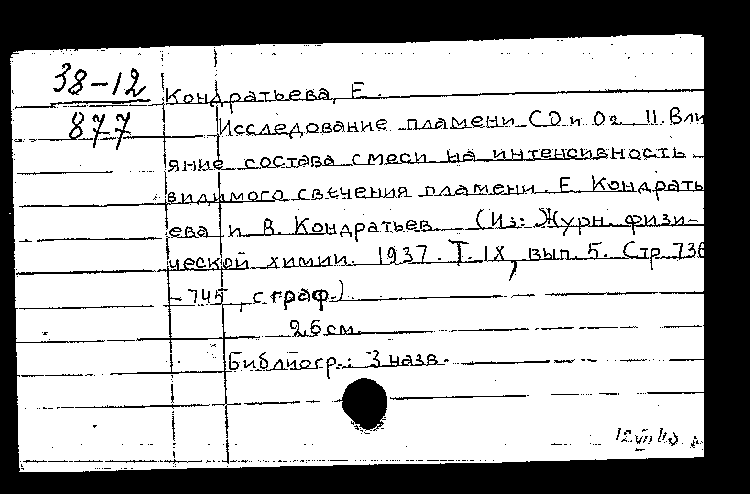 38-12
877
Кондратьева, Е.
Исследование пламени CO и O2. II. Вли
яние состава смеси на интенсивность
видимого свечения пламени. Е. Кондрать
ева и В. Кондратьев. (Из: Журн. физи-
ческой химии. 1937. Т. IX, вып. 5. Стр. 736
- 745, с граф.)
26 см.
Библиогр.: 3 назв.